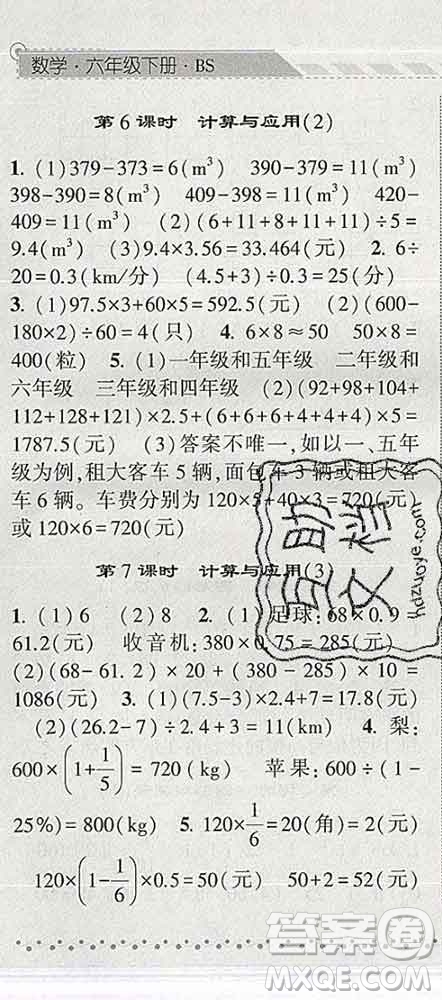 数学·六年级下册·BS
第6课时 计算与应用(2)
1. (1)379-373=6(m³) 390-379=11(m³)
398-390=8(m³) 409-398=11(m³) 420-
409=11(m³) (2)(6+11+8+11+11)÷5=
9.4(m³) (3)9.4×3.56=33.464(元) 2. 6÷
20=0.3(km/分) (4.5+3)÷0.3=25(分)
3. (1)97.5×3+60×5=592.5(元) (2)(600-
180×2)÷60=4(只) 4. 6×8≈50 50×8=
400(粒) 5. (1)一年级和五年级 二年级和
六年级 三年级和四年级 (2)(92+98+104+
112+128+121)×2.5+(6+6+6+4+4+4)×5=
1787.5(元) (3)答案不唯一,如以一、五年
级为例,租大客车5辆,面包车3辆或租大客
车6辆。车费分别为120×5+40×3=720(元)
或120×6=720(元)
第7课时 计算与应用(3)
1. (1)6 (2)8 2. (1)足球:68×0.9=
61.2(元) 收音机:380×0.75=285(元)
(2)(68-61.2)×20+(380-285)×10=
1086(元) 3. (1)(7.5-3)×2.4+7=17.8(元)
(2)(26.2-7)÷2.4+3=11(km) 4. 梨:
600×(1+1/5)=720(kg) 苹果:600÷(1-
25%)=800(kg) 5. 120×1/6=20(角)=2(元)
120×(1-1/6)×0.5=50(元) 50+2=52(元)
互助文档
hdzuoye.com
答案圈
MXQE.COM